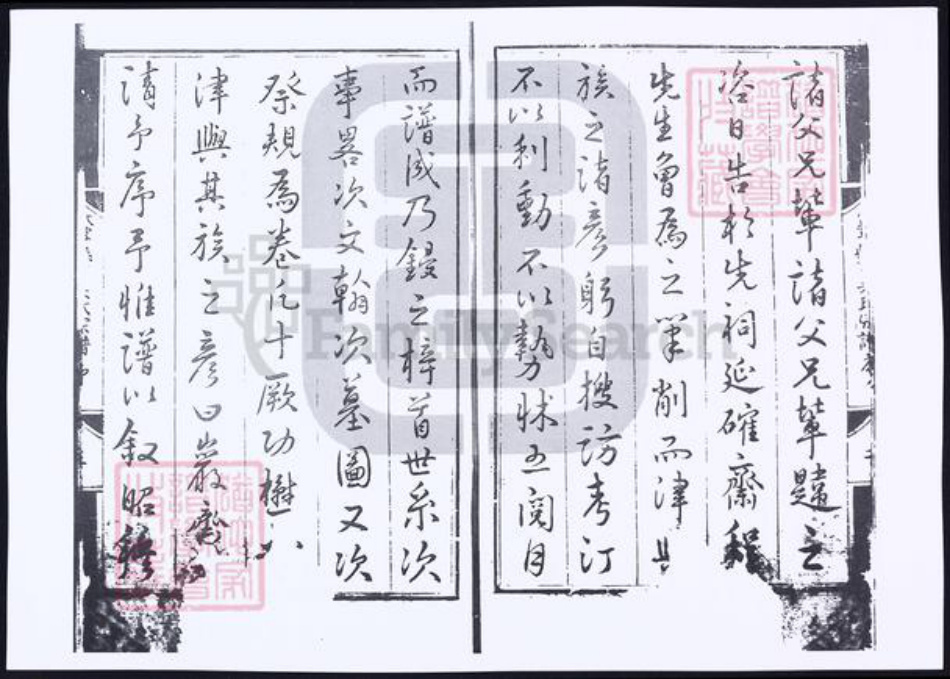 諸父兄輩諸父兄輩韙之
涓日告於先祠延確齋程
先生魯為之筆削而津與
族之諸彥躬自搜訪考訂
不以利動不以勢怵五閱月
而譜成乃鋟之梓首世系次
事畧次文翰次墓圖又次
祭規為卷凡十厥功懋
津與其族之彥曰嚴齋
請予序予惟譜以叙昭穆
FamilySearch